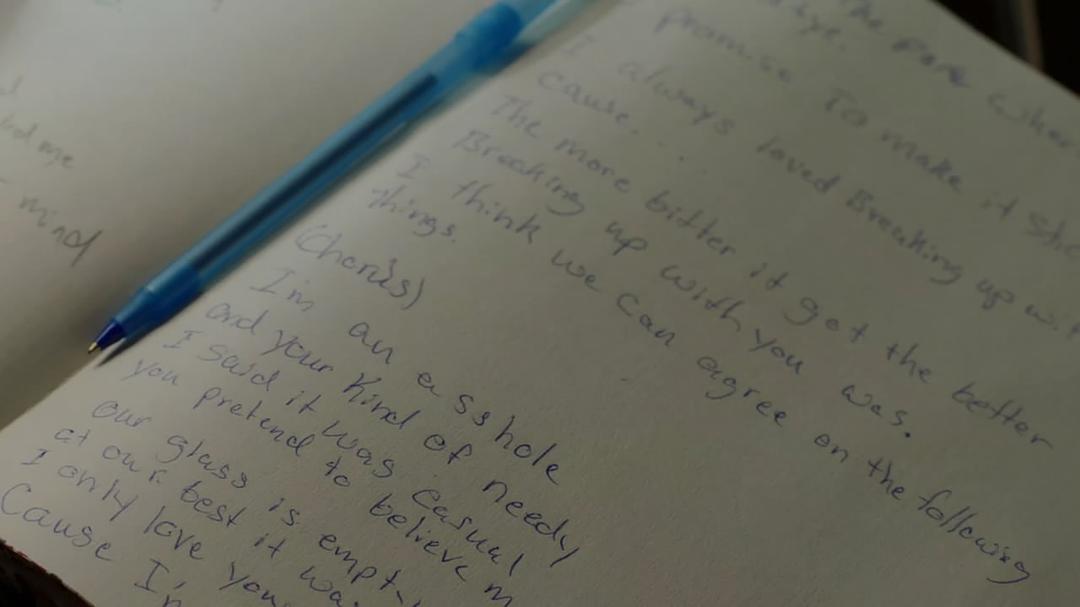 mind
The park wher
promise To make it
I always loved Breaking up wit
cause...
The more bitter it got the better
Breaking up with you was.
I think we can agree on the following
things.
(Chorus)
I'm an asshole
and your kind of needy
I said it was casual
you pretend to believe m
our glass is empty
at our best it was
I only love you
Cause I'm